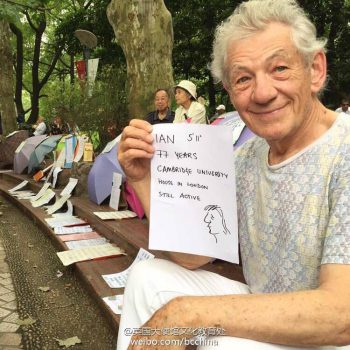 IAN 5'11"
77 YEARS
CAMBRIDGE UNIVERSITY
HOUSE IN LONDON
STILL ACTIVE
@英国大使馆文化教育处
weibo.com/bcchina